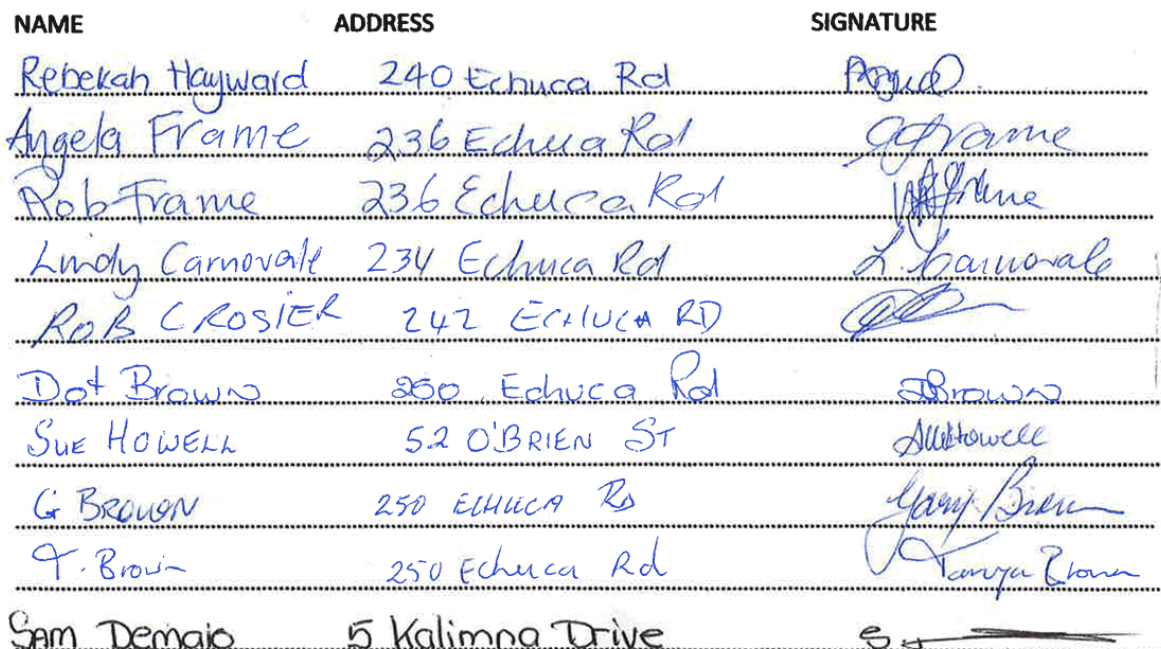 NAME ADDRESS SIGNATURE
Rebekah Hayward 240 Echuca Rd
Angela Frame 236 Echuca Rd aframe
Rob Frame 236 Echuca Rd
Lindy Carnovale 234 Echuca Rd L. Carnovale
ROB CROSIER 242 ECHUCA RD
Dot Brown 250 Echuca Rd DBrown
SUE HOWELL 52 O'BRIEN ST SueHowell
G BROWN 250 ECHUCA RD Gary Brown
T. Brown 250 Echuca Rd Tanya Brown
Sam Demaio 5 Kalimna Drive S